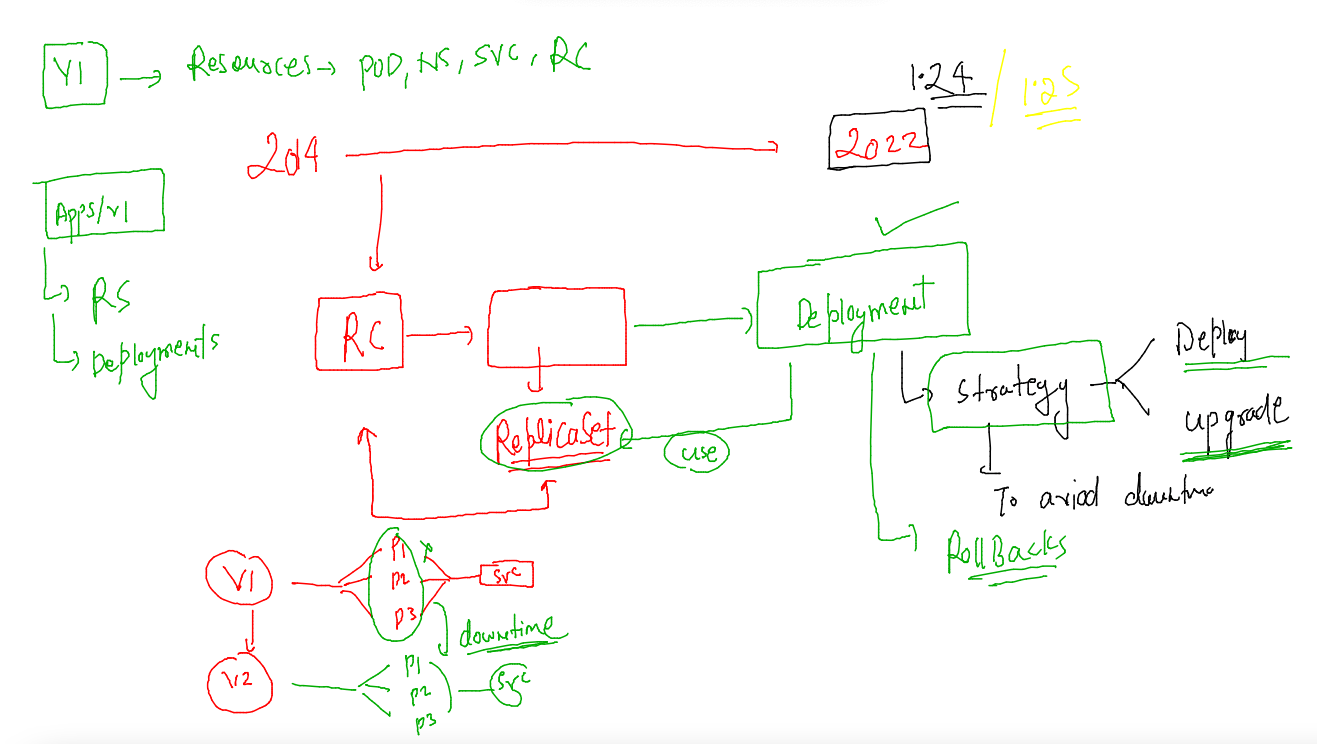 V1 → Resources → POD, NS, SVC, RC
1.24 / 1.25
2014
2022
Apps/v1
RS
Deployments
RC
Deployment
Strategy
Deploy
upgrade
ReplicaSet
use
To avoid downtime
RollBacks
V1
P1
P2
P3
svc
downtime
V2
P1
P2
P3
svc